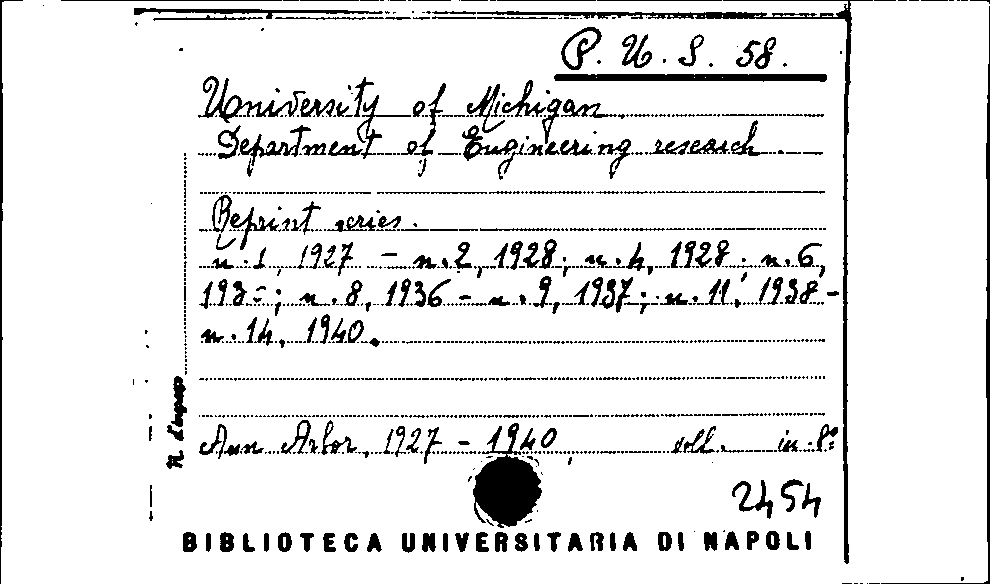 P. U. S. 58.
University of Michigan.
Department of Engineering research.
Reprint series.
n. 1, 1927 - n. 2, 1928; n. 4, 1928. n. 6,
n. 8, 1936 - n. 9, 1937; n. 11, 1938 -
n. 14, 1940.
N. d'ingresso
Ann Arbor, 1927 - 1940, voll. in-8°
2454
BIBLIOTECA UNIVERSITARIA DI NAPOLI